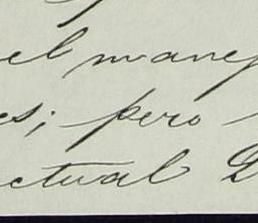 el manej
es; pero
ctual D